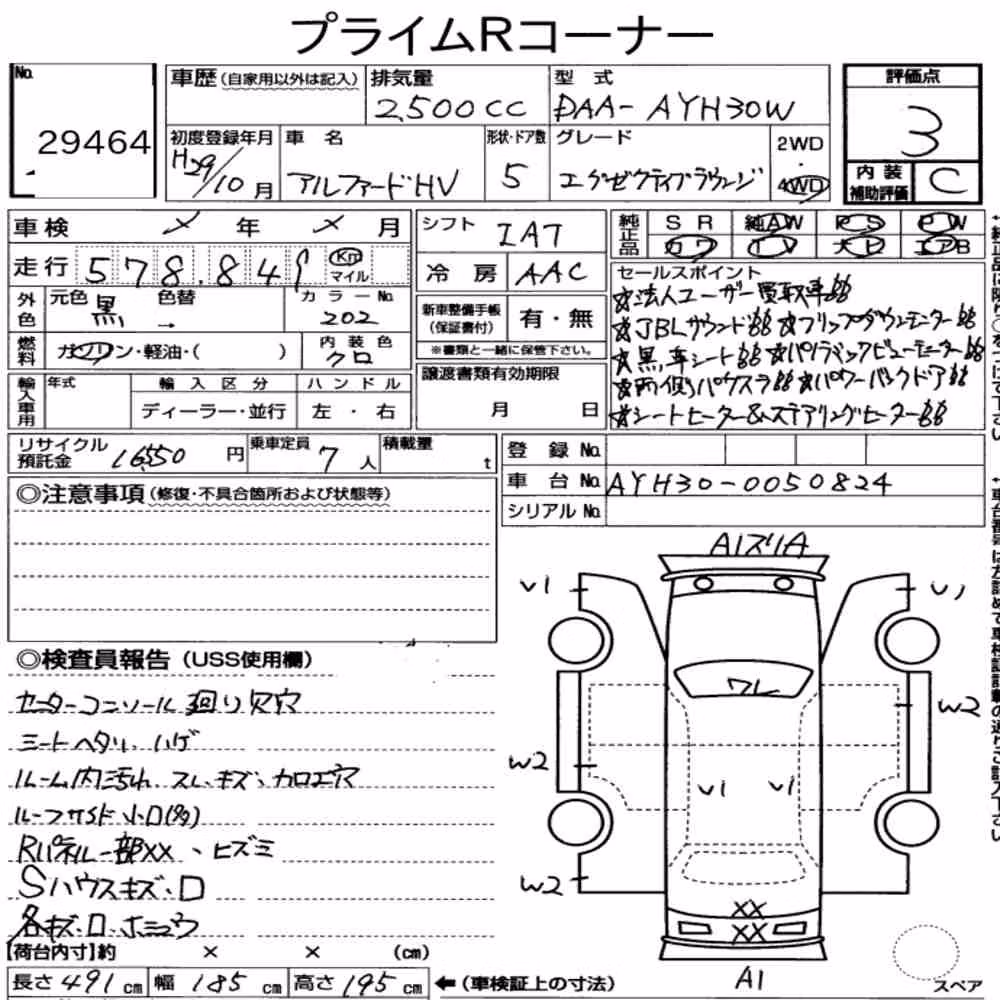 プライムRコーナー
No. 29464
車歴 (自家用以外は記入)
排気量 2,500cc
型式 DAA-AYH30W
評価点 3
内装補助評価 C
初度登録年月 H29/10月
車名 アルファードHV
形状・ドア数 5
グレード エグゼクティブラウンジ
2WD・4WD
車検 メ 年 メ 月
シフト IAT
純正品 SR 純AW PS PW
カワ TV ナビ エアB
走行 578.849 Km マイル
冷房 AAC
セールスポイント
☆法人ユーザー買取車!!
☆JBLサウンド!! ☆フリップダウンモニター!!
☆黒革シート!! ☆パノラミックビューモニター!!
☆両側パワスラ!! ☆パワーバックドア!!
☆シートヒーター&ステアリングヒーター!!
外色 元色 黒 色替 → カラーNo. 202
新車整備手帳(保証書付) 有・無
※書類と一緒に保管下さい。
燃料 ガソリン・軽油・( )
内装色 クロ
譲渡書類有効期限 月 日
輸入車用 年式 輸入区分 ハンドル
ディーラー・並行 左・右
リサイクル預託金 16,550 円
乗車定員 7 人
積載量 t
登録No.
車台No. AYH30-0050824
シリアルNo.
◎注意事項 (修復・不具合箇所および状態等)
◎検査員報告 (USS使用欄)
センターコンソール廻り欠穴
シートヘタリ、ハゲ
ルーム内汚れ、スレ、キズ、カロエ穴
ルーフサイド小凹(P多)
Rパネル一部XX、ヒズミ
Sハウスキズ・凹
各キズ・凹・ホシュウ
A1ズリA
V1
V1
ワレ
W2
W2
V1
V1
W2
XX
XX
A1
スペア
【荷台内寸】約 × × (cm)
長さ 491 cm 幅 185 cm 高さ 195 cm ←(車検証上の寸法)